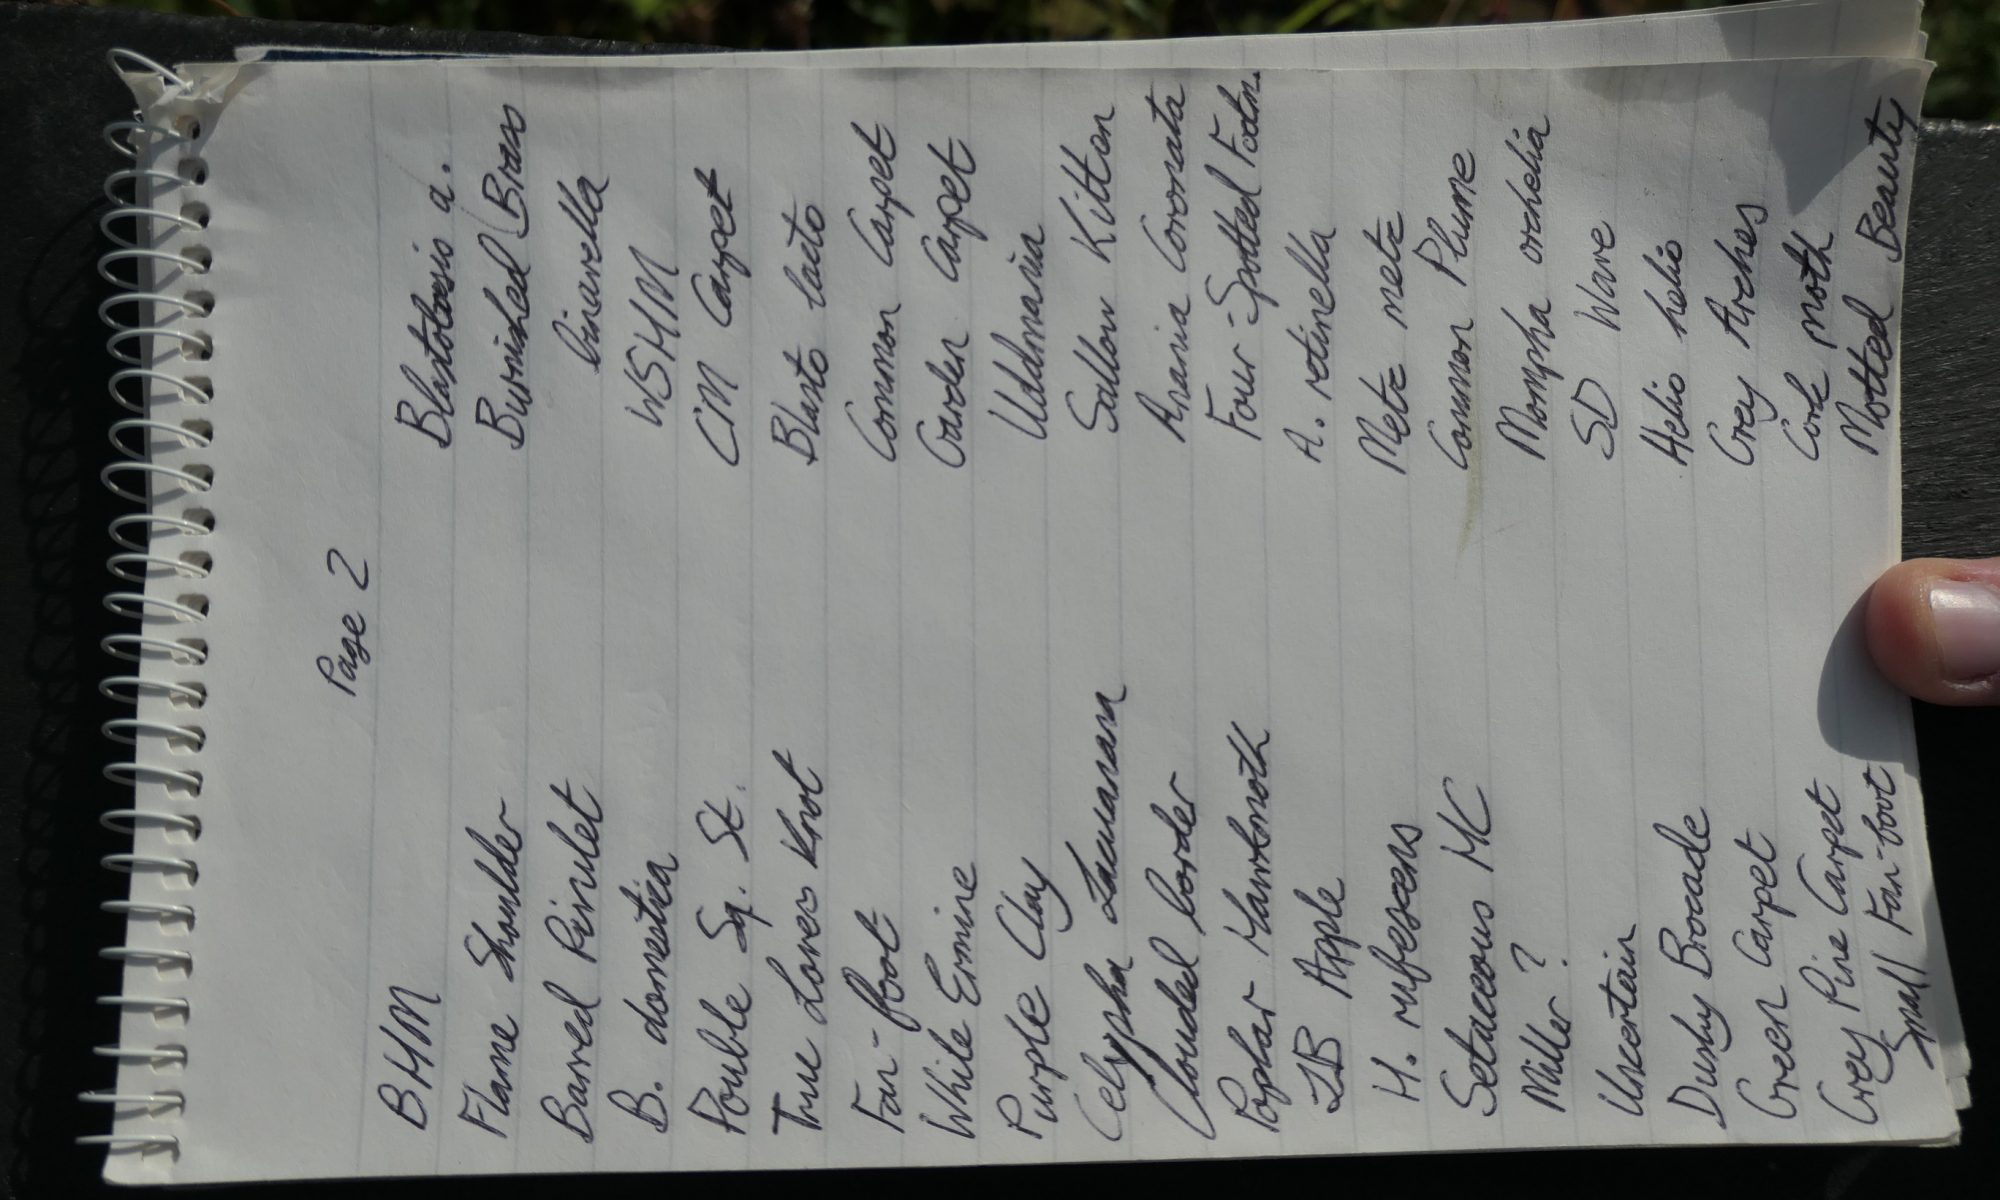 Page 2
BHM
Flame Shoulder
Bared Rivulet
B. domestica
Double Sq. St.
True Lovers Knot
Fan-foot
White Ermine
Purple Clay
Celypha Lacunana
Clouded border
Poplar Hawkmoth
LB Apple
H. rufescens
Setaceous HC
Miller?
Uncertain
Dusky Brocade
Green Carpet
Grey Pine Carpet
Small Fan-foot
a.
Burnished Brass
WSHM
CM Carpet
Blasto lacto
Common Carpet
Garden Carpet
Uddmania
Sallow Kitten
Anania Coronata
Four-Spotted Footm.
A. retinella
Metz metz
Common Plume
Mompha
SD Wave
Helio helio
Grey Arches
moth
Motted Beauty